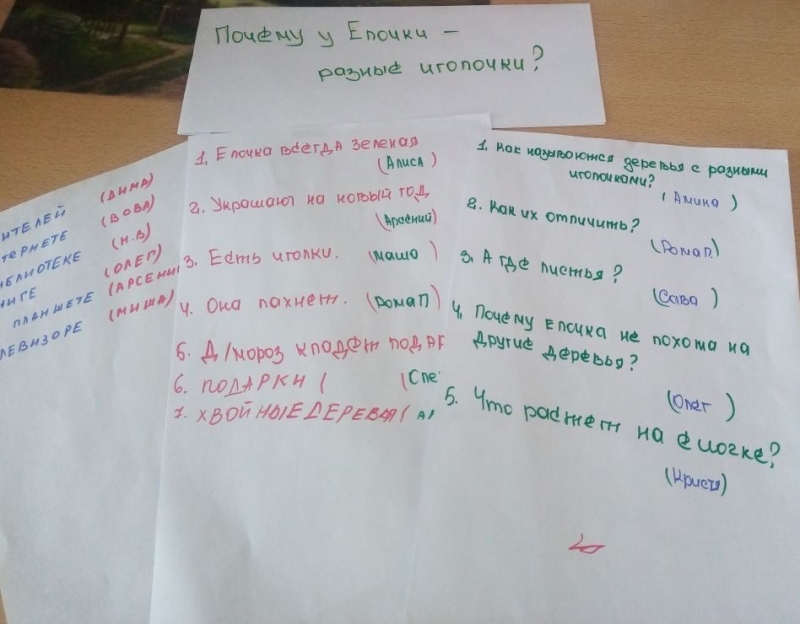 Почему у Елочки –
разные иголочки?
ИТЕЛЕЙ (ДИМА)
ТЕРНЕТЕ (ВОВА)
ИБЛИОТЕКЕ (Н.В)
ИГЕ (ОЛЕГ)
ПЛАНШЕТЕ (АРСЕНИ
ЛЕВИЗОРЕ (МИША)
1. Елочка всегда зеленая
(Алиса)
2. Украшают на новый год
(Арсений)
3. Есть иголки. (Машо)
4. Она пахнет. (Рома П)
5. Д/мороз кладет подар
6. ПОДАРКИ ( (Сте
7. ХВОЙНЫЕ ДЕРЕВЬЯ (А
1. Как называются деревья с разными
иголочками?
(Амина)
2. Как их отличить?
(Рома П)
3. А где листья?
(Сава)
4. Почему елочка не похожа на
другие деревья?
(Олег)
5. Что растет на елочке?
(Кристя)